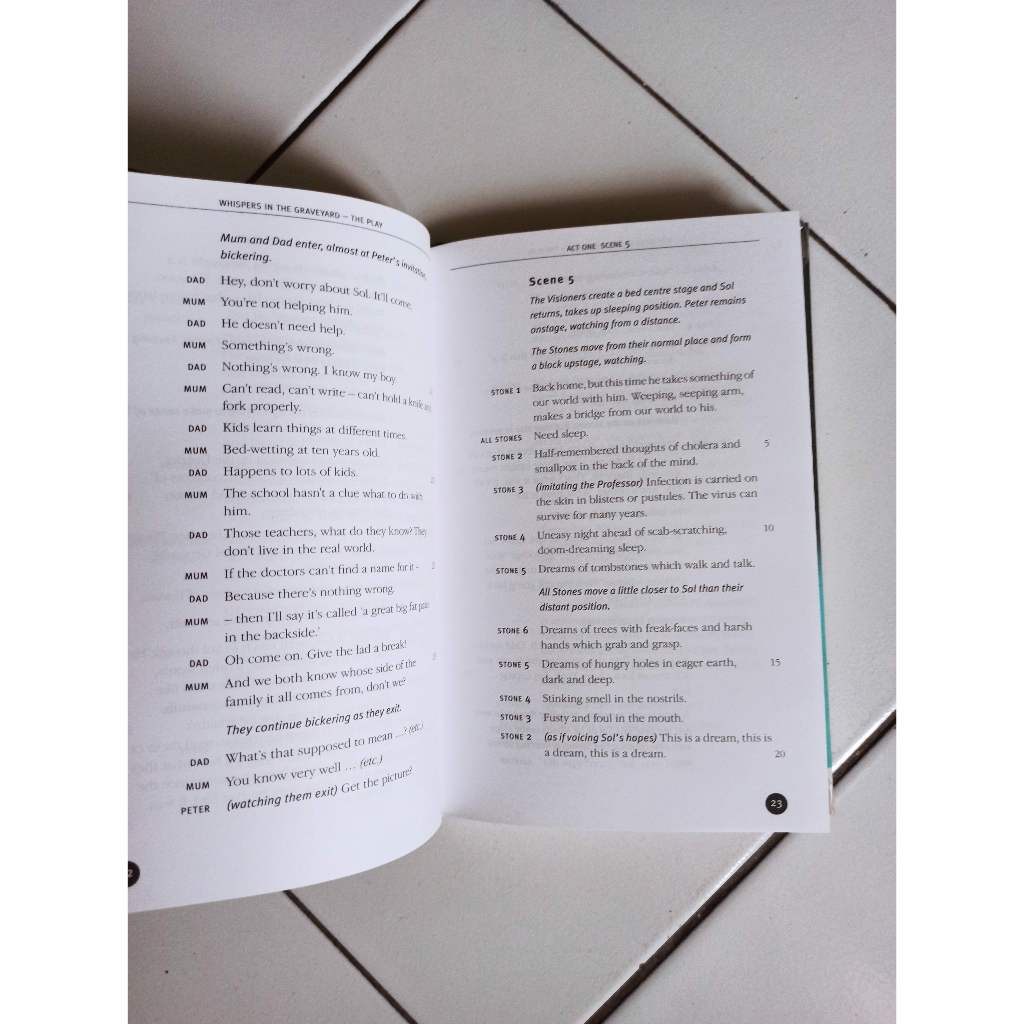 WHISPERS IN THE GRAVEYARD – THE PLAY
Mum and Dad enter, almost at Peter's invitation,
bickering.
DAD Hey, don't worry about Sol. It'll come.
MUM You're not helping him.
DAD He doesn't need help.
MUM Something's wrong.
DAD Nothing's wrong. I know my boy.
MUM Can't read, can't write – can't hold a knife and
fork properly.
DAD Kids learn things at different times.
MUM Bed-wetting at ten years old.
DAD Happens to lots of kids.
MUM The school hasn't a clue what to do with
him.
DAD Those teachers, what do they know? They
don't live in the real world.
MUM If the doctors can't find a name for it –
DAD Because there's nothing wrong.
MUM – then I'll say it's called 'a great big fat pain
in the backside.'
DAD Oh come on. Give the lad a break!
MUM And we both know whose side of the
family it all comes from, don't we?
They continue bickering as they exit.
DAD What's that supposed to mean ...? (etc.)
MUM You know very well ... (etc.)
PETER (watching them exit) Get the picture?
2
ACT ONE SCENE 5
Scene 5
The Visioners create a bed centre stage and Sol
returns, takes up sleeping position. Peter remains
onstage, watching from a distance.
The Stones move from their normal place and form
a block upstage, watching.
STONE 1 Back home, but this time he takes something of
our world with him. Weeping, seeping arm,
makes a bridge from our world to his.
ALL STONES Need sleep.
STONE 2 Half-remembered thoughts of cholera and 5
smallpox in the back of the mind.
STONE 3 (imitating the Professor) Infection is carried on
the skin in blisters or pustules. The virus can
survive for many years.
STONE 4 Uneasy night ahead of scab-scratching, 10
doom-dreaming sleep.
STONE 5 Dreams of tombstones which walk and talk.
All Stones move a little closer to Sol than their
distant position.
STONE 6 Dreams of trees with freak-faces and harsh
hands which grab and grasp.
STONE 5 Dreams of hungry holes in eager earth, 15
dark and deep.
STONE 4 Stinking smell in the nostrils.
STONE 3 Fusty and foul in the mouth.
STONE 2 (as if voicing Sol's hopes) This is a dream, this is
a dream, this is a dream. 20
23